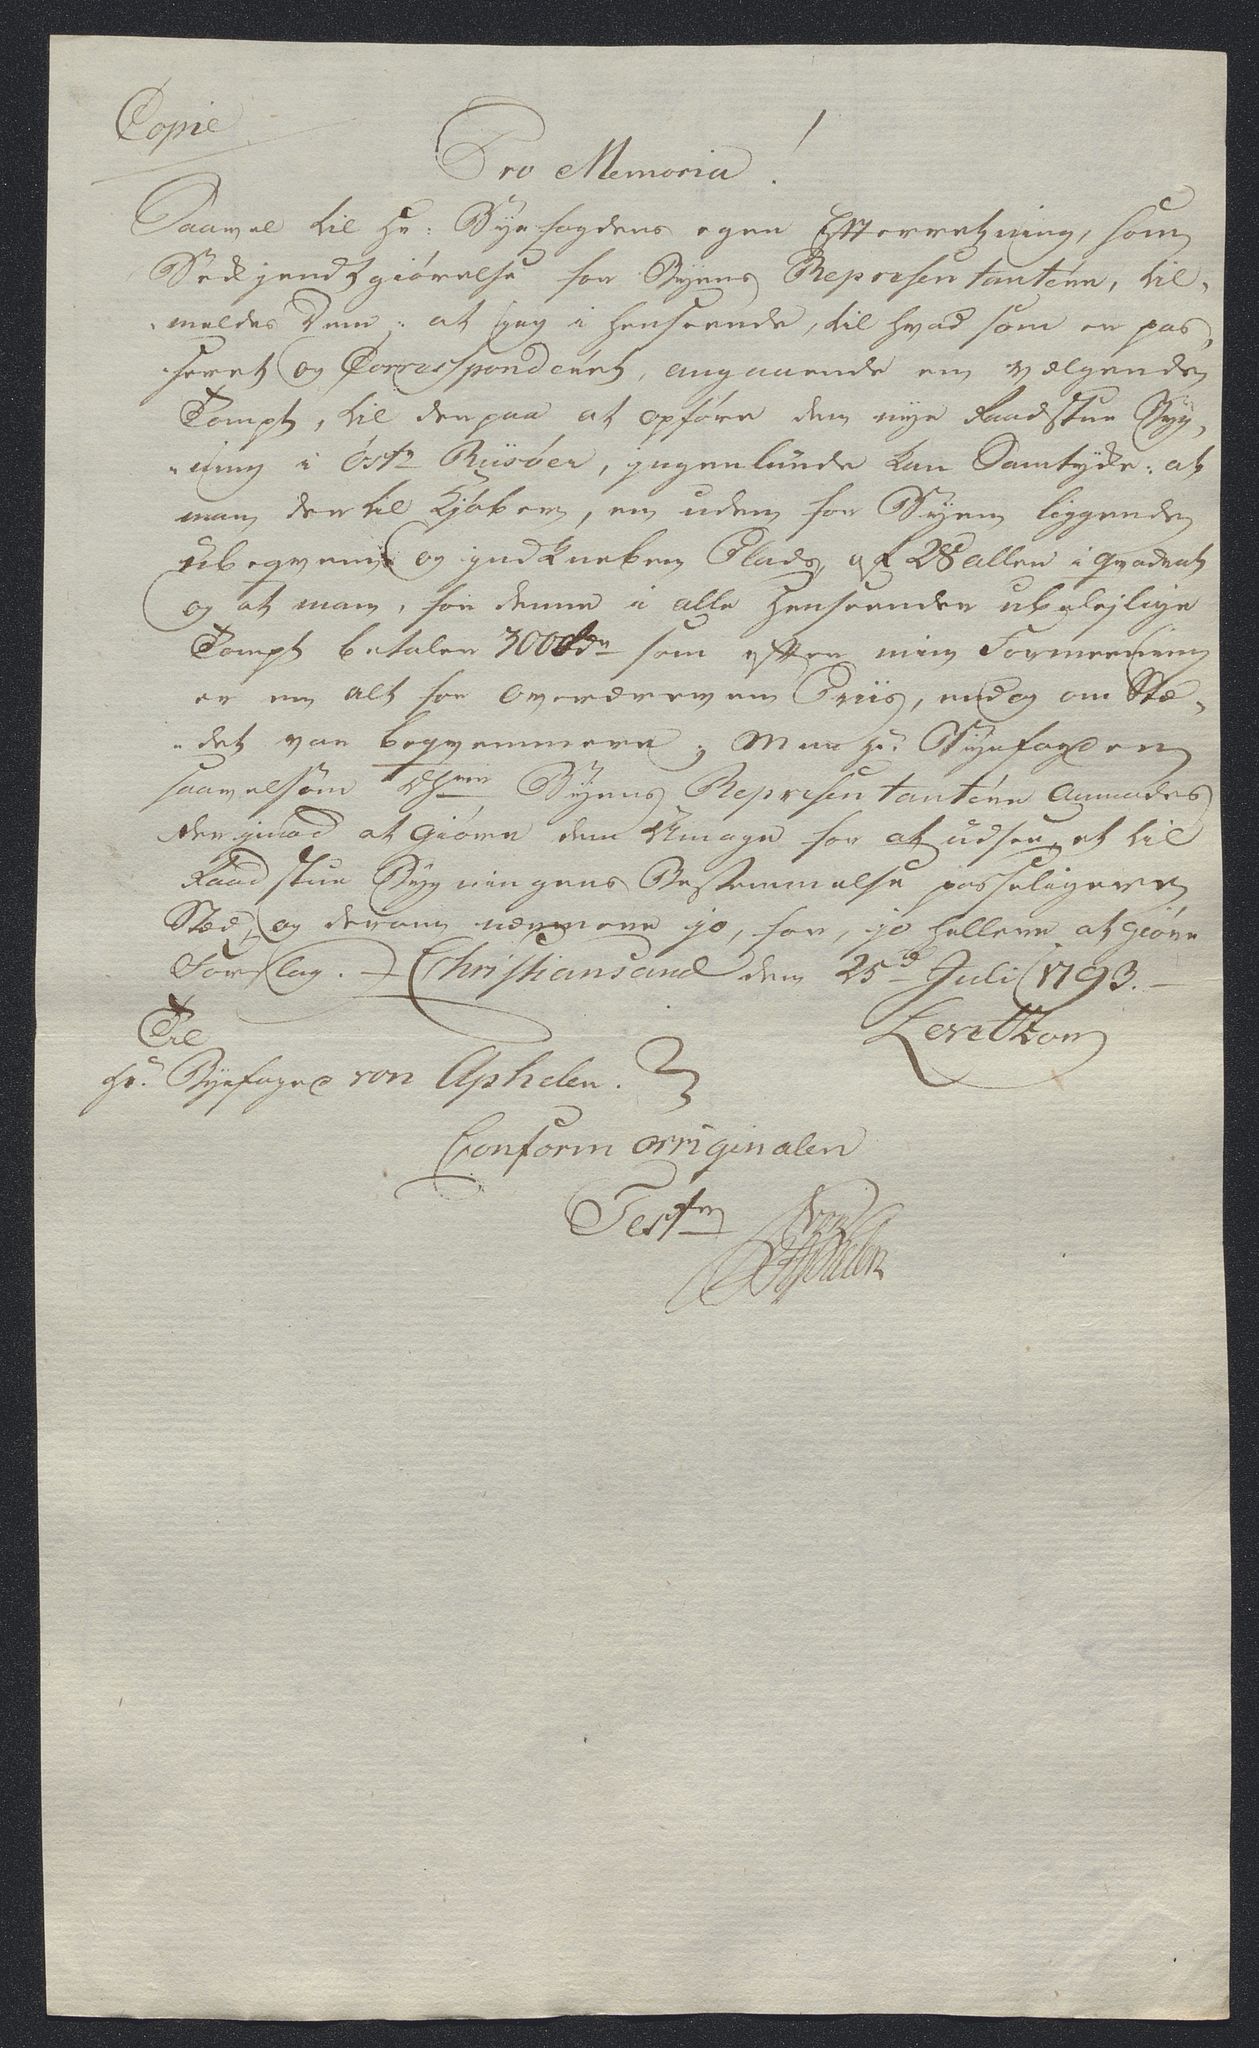 Copie
Pro Memoria!
Saavel til Hr: Byefogdens egen Efterretning, som
Bekjendtgiørelse for Byens Repræsentantere, til-
-meldes Dem: at jeg i henseende, til hvad som er pas-
seret og Correspondéret, angaaende en vælgende
Tompt, til derpaa at opføre den nye Raadstue Byg-
-ning i Østr Riisøer, ingenlunde kan Samtykke: at
man dertil Kjøber, en uden for Byen liggende
ubeqvem og indkneben Plads, af 28 allen i qvadrat
og at man, for denne i alle henseender ubelejlige
Tompt betaler 300 rdr som efter min Formeening
er en alt for overdreven Priis, endog om Stæ-
-det var beqvemmere; Men Hr. Byefogden
saavelsom Byens Repræsentantere anmodes
derimod at giøre dem Umage for at udsee, et til
Raadstue Bygningens Bestemmelse passeligere
Stæd, og derom nærmere jo, før, jo hellere at giøre
Forslag. Christiansand den 25de Juli 1793.
Levetzow
Til
Hr. Byefoged von Aphelen.
Conform originalen
Testr
von Aphelen